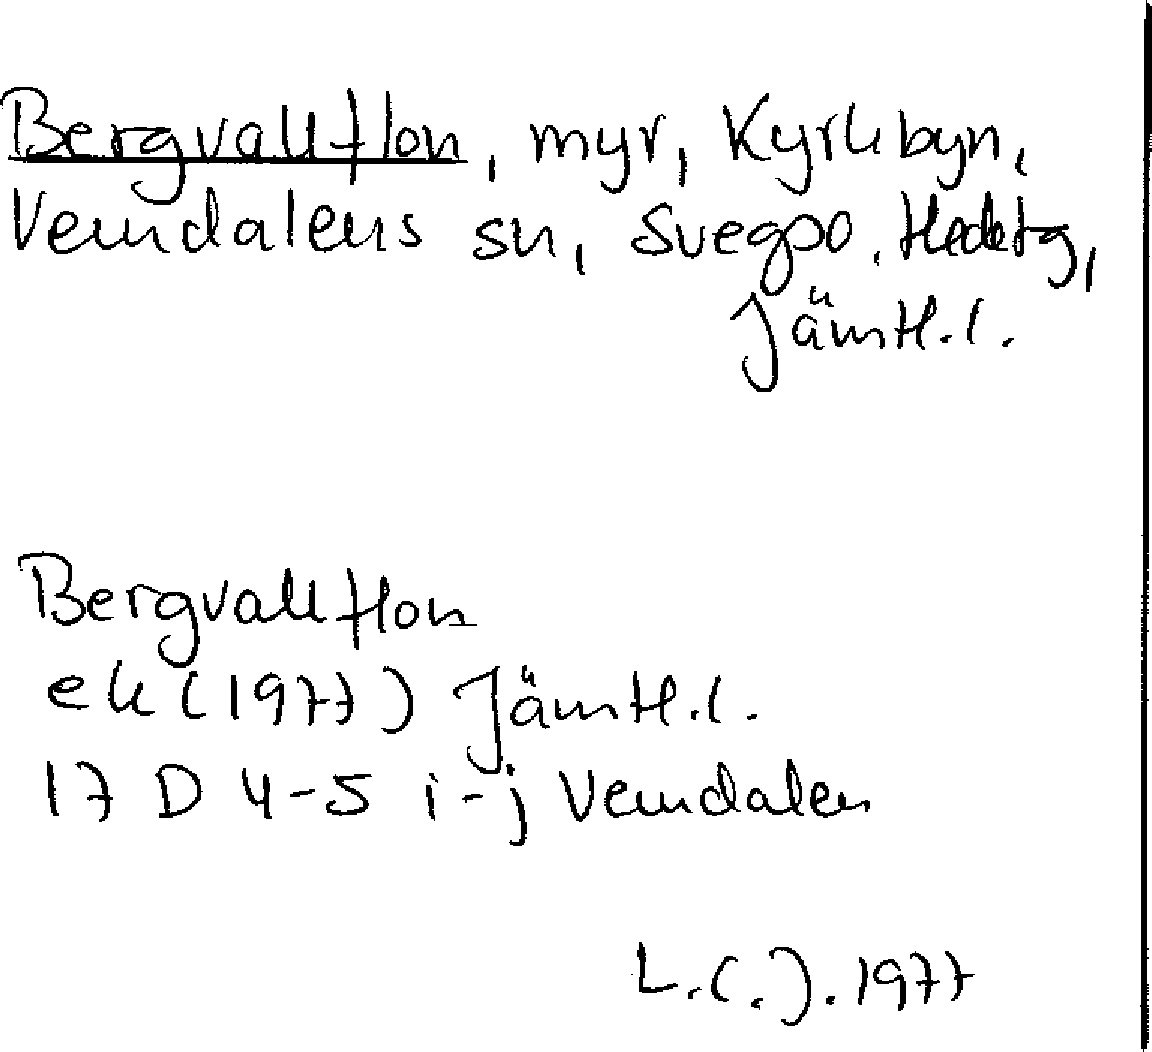 Bergvallflon, myr, Kyrkbyn,
Vemdalens sn, Svegs po,
Jämtl.l.
Bergvallflon
ek (1977) Jämtl.l.
17 D 4-5 i-j Vemdalen
L.C.J. 1977